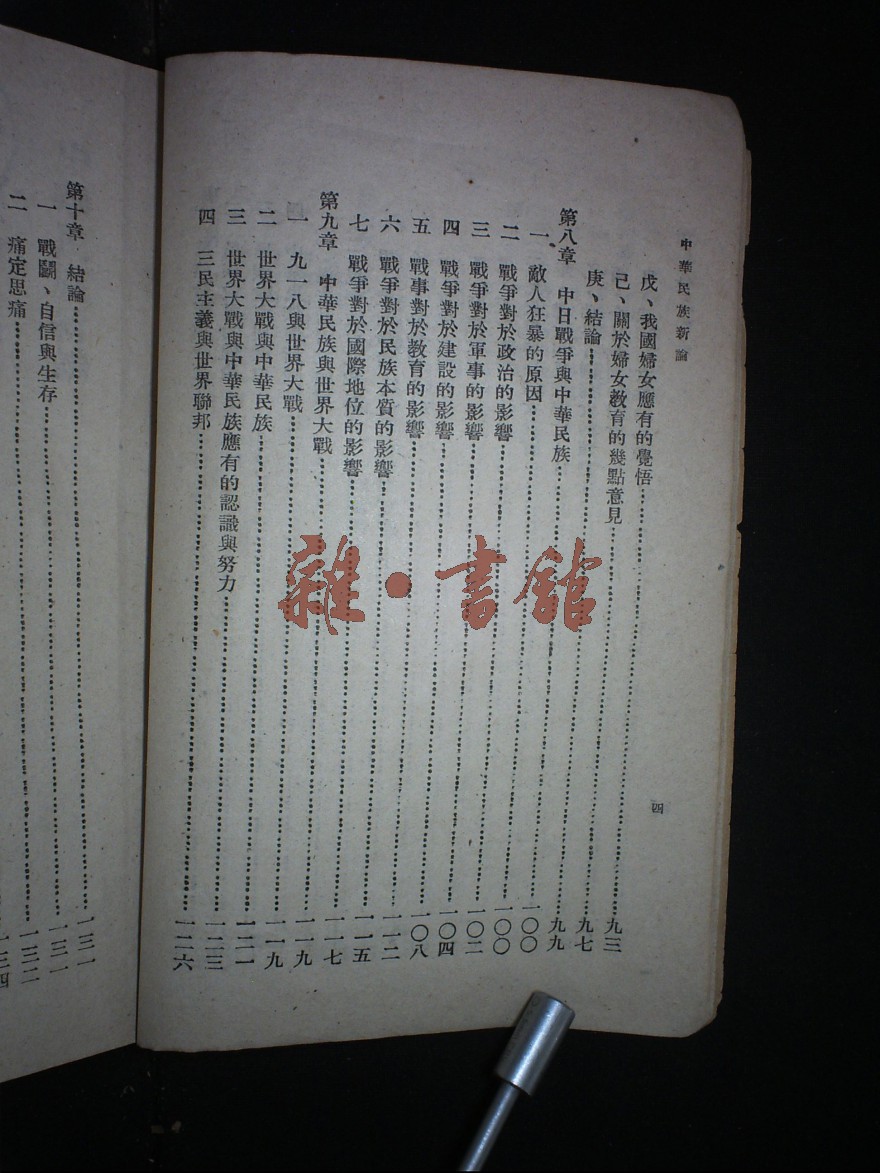 中華民族新論
四
戊、我國婦女應有的覺悟……九三
己、關於婦女教育的幾點意見……九七
庚、結論……九九
第八章 中日戰爭與中華民族……一〇〇
一 敵人狂暴的原因……一〇〇
二 戰爭對於政治的影響……一〇二
三 戰爭對於軍事的影響……一〇四
四 戰爭對於建設的影響……一〇八
五 戰事對於教育的影響……一一二
六 戰爭對於民族本質的影響……一一五
七 戰爭對於國際地位的影響……一一七
第九章 中華民族與世界大戰……一一九
一 九一八與世界大戰……一一九
二 世界大戰與中華民族……一二一
三 世界大戰與中華民族應有的認識與努力……一二三
四 三民主義與世界聯邦……一二六
第十章 結論……一三一
一 戰鬭、自信與生存……一三一
二 痛定思痛……一三二
一三四
雜·書館